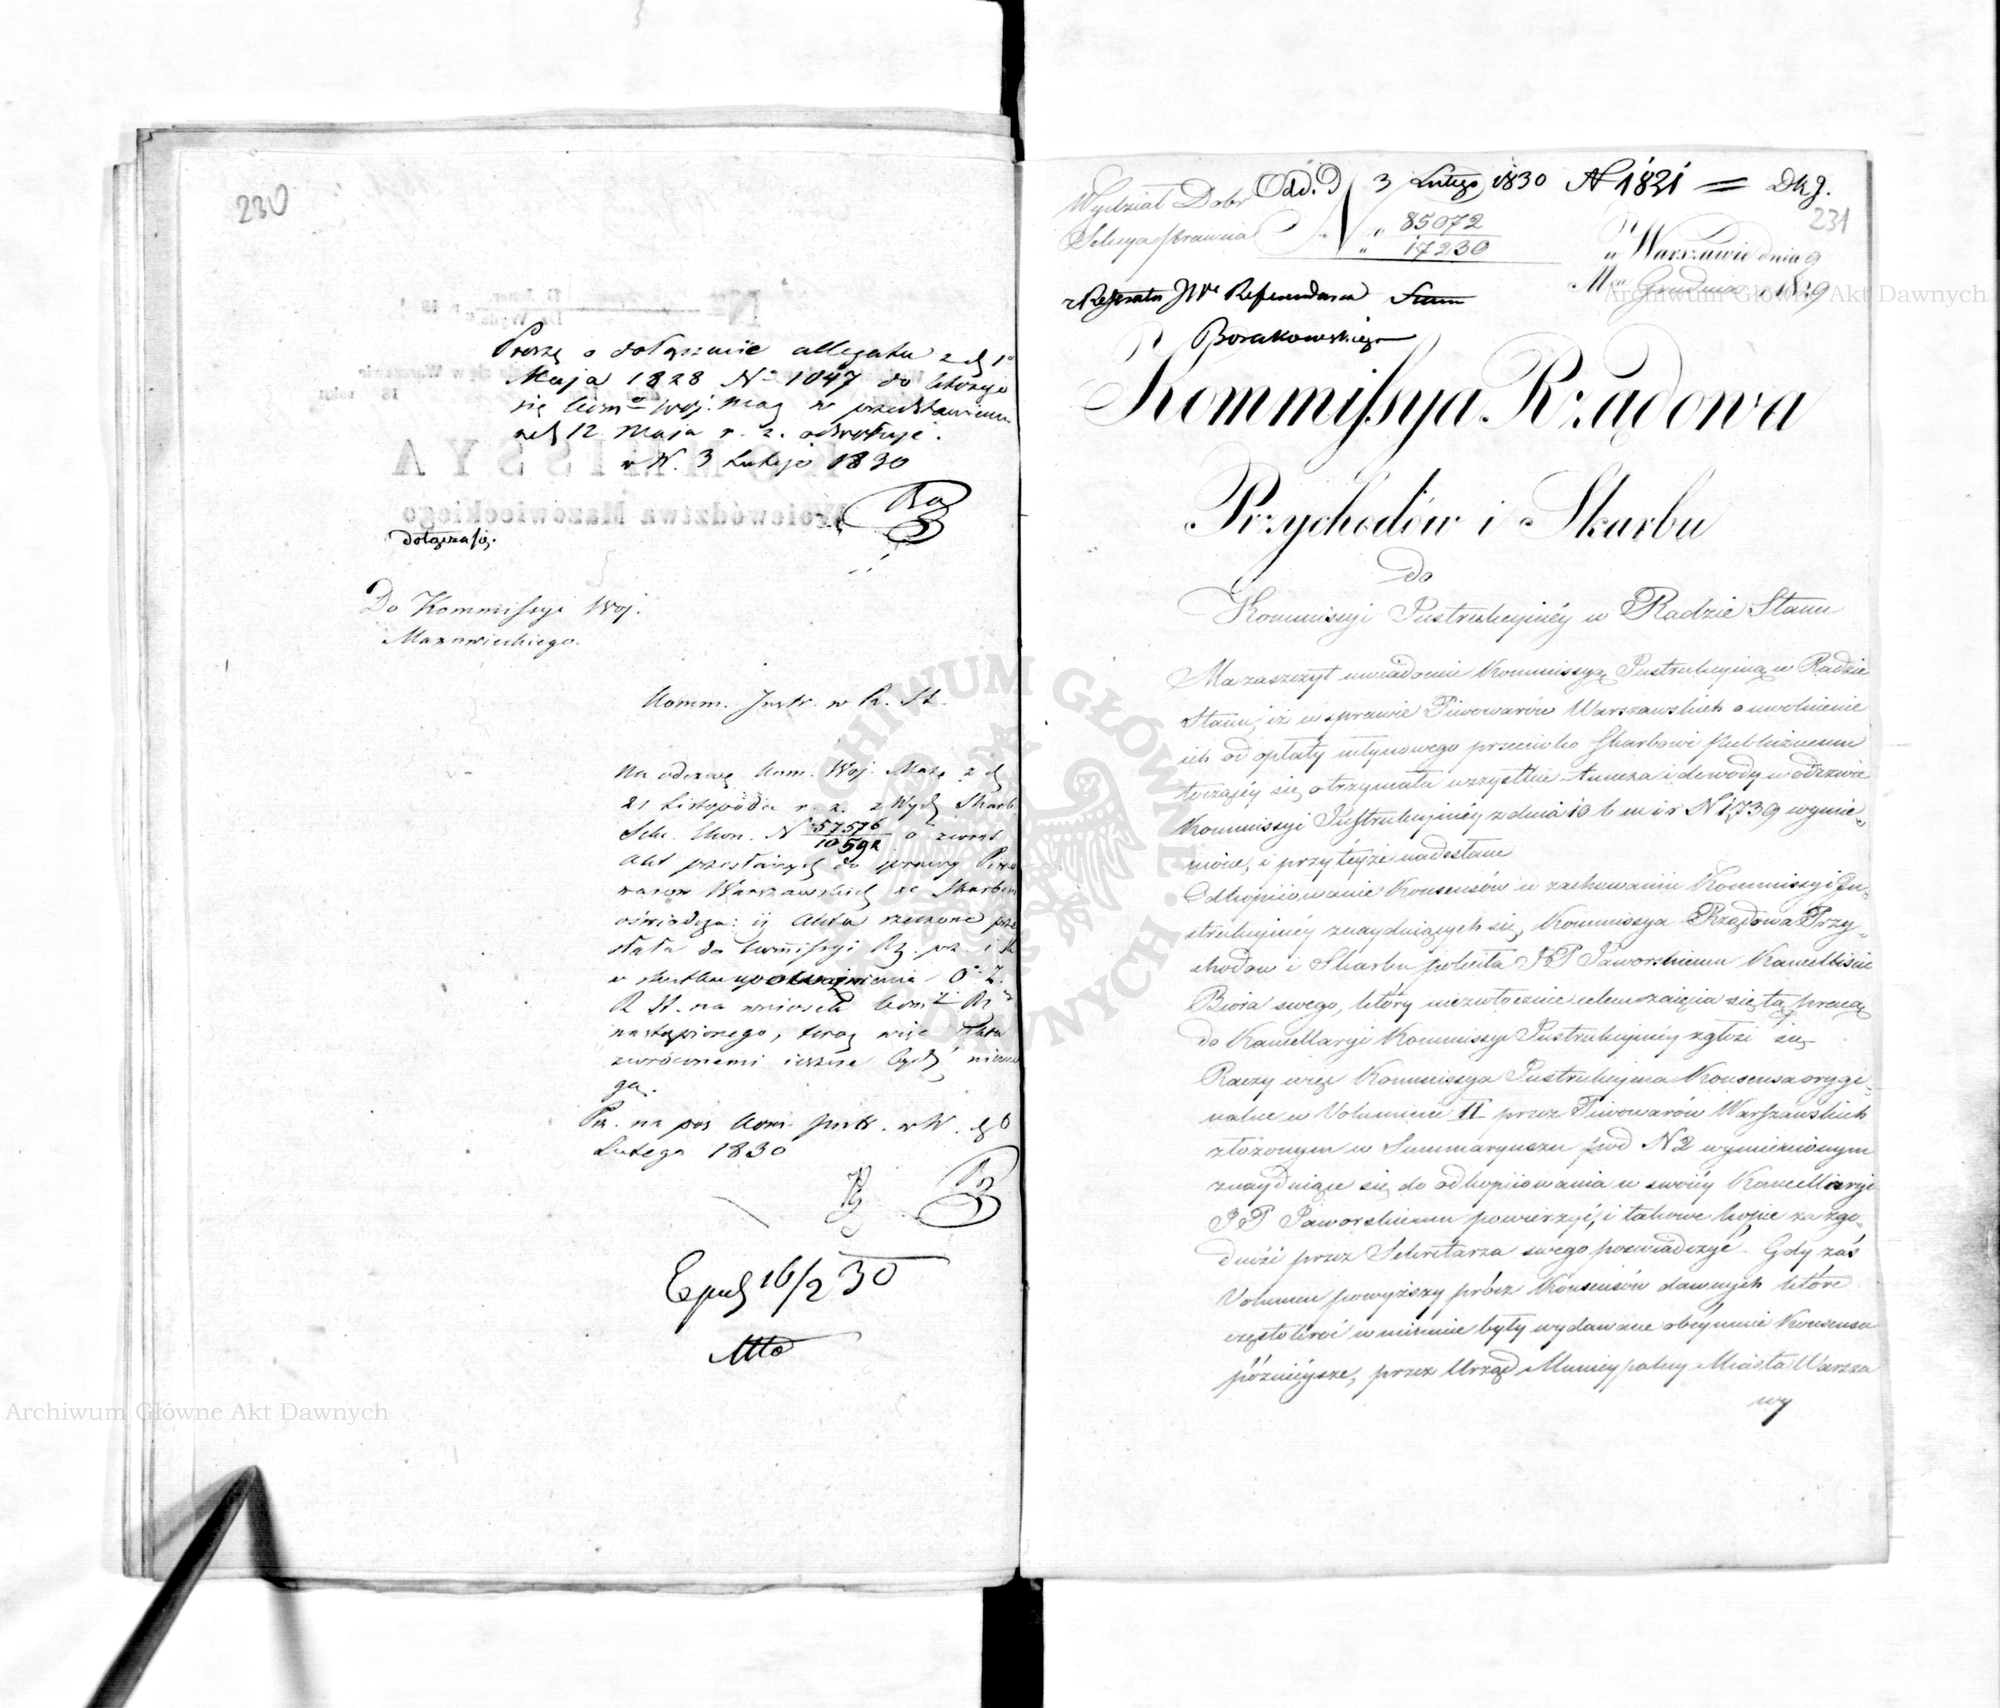 230
Proszę o dołączenie allegatu z d. 1o
Maja 1828 No 1047 do którego
się Kom. Woj. Maz. w przedstawieniu
z d. 12 Maja r. z. odwołuje.
w W. 3 Lutego 1830
dołącza się.
Do Kommissyi Woj.
Mazowieckiego.
Komm. Instr. w R. St.
Na odezwę Kom. Woj. Maz. z d.
21 Listopada r. z. z Wydz. Skarb.
Sek. Kon. N 57576/10592 o zwrot
Akt przesłanych do sprawy Piwo
warów Warszawskich ze Skarbem
oświadcza: iż Akta rzeczone prze
słała do Kommissyi Rz. Prz. i S.
w skutku upoważnienia
R. St. na wniosek Kom. Rz.
nastąpionego, teraz więc Akta
zwróconemi jeszcze bydź nie mo
gą.
na pos. Kom. Instr. w W. d. 6
Lutego 1830
Exped. 16/2 30
Wydział Dobr
Sekcya Prawna
Odd. D 3 Lutego 1830 N 1831 = Dkg.
N 85072
17230
231
w Warszawie dnia 9
Mca Grudnia 1829
z Referatu JWe Referendarza Stanu
Borakowskiego
Kommissya Rządowa
Przychodów i Skarbu
do
Kommissyi Instrukcyinéy w Radzie Stanu
Ma zaszczyt uwiadomić Kommissyą Instrukcyiną w Radzie
Stanu, iż w sprawie Piwowarów Warszawskich o uwolnienie
ich od opłaty młynowego przeciwko Skarbowi Publicznemu
toczącéy się, otrzymała wszystkie Annexa i dowody w odezwie
Kommissyi Instrukcyinéy z dnia 10 b m i r N 1,739 wymie-
nione, i przy téyże nadesłane
Odkopiiowanie Konsensów w zachowaniu Kommissyi In-
strukcyinéy znayduiących się, Kommissya Rządowa Przy-
chodów i Skarbu poleciła JP Jaworskiemu Kancelliście
Biora swego, który niezwłocznie celem zaięcia się tą pracą
do Kancellaryi Kommissyi Instrukcyinéy zgłosi się
Raczy więc Kommissya Instrukcyina Konsensa orygi-
nalne w Voluminie II przez Piwowarów Warszawskich
złożonym w Summaryuszu pod N 2 wymienionym
znayduiące się do odkopiiowania w swoiéy Kancellaryi
JP Jaworskiemu powierzyć, i takowe kopie za zgo-
dność przez Sekretarza swego poświadczyć. Gdy zaś
Volumen powyższy prócz Konsensów dawnych które
często kroć w mieście były wydawane obeymuie Konsensa
późnieysze, przez Urząd Municypalny Miasta Warsza
wy
Archiwum Główne Akt Dawnych
Archiwum Główne Akt Dawnych